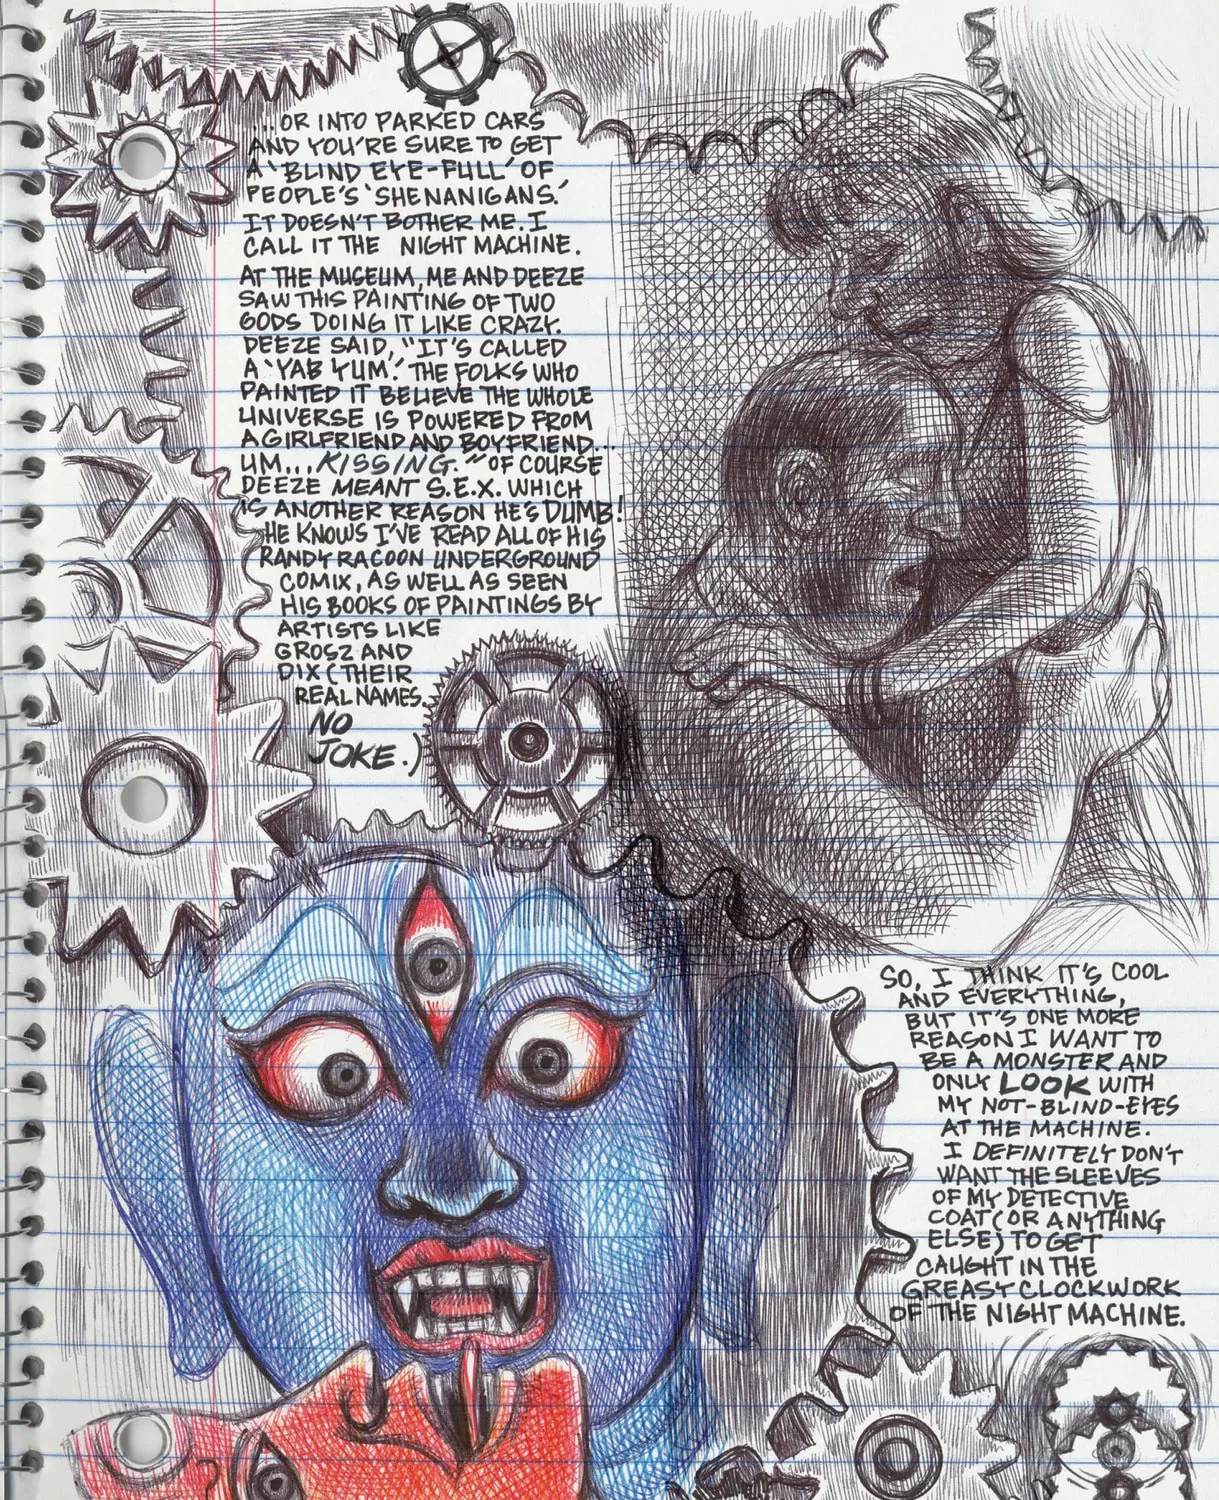 ...OR INTO PARKED CARS
AND YOU'RE SURE TO GET
A 'BLIND EYE-FULL' OF
PEOPLE'S 'SHENANIGANS.'
IT DOESN'T BOTHER ME. I
CALL IT THE NIGHT MACHINE.
AT THE MUSEUM, ME AND DEEZE
SAW THIS PAINTING OF TWO
GODS DOING IT LIKE CRAZY.
DEEZE SAID, "IT'S CALLED
A 'YAB YUM.' THE FOLKS WHO
PAINTED IT BELIEVE THE WHOLE
UNIVERSE IS POWERED FROM
A GIRLFRIEND AND BOYFRIEND...
UM...KISSING." OF COURSE
DEEZE MEANT S.E.X. WHICH
IS ANOTHER REASON HE'S DUMB!
HE KNOWS I'VE READ ALL OF HIS
RANDY RACOON UNDERGROUND
COMIX, AS WELL AS SEEN
HIS BOOKS OF PAINTINGS BY
ARTISTS LIKE
GROSZ AND
DIX (THEIR
REAL NAMES.
NO
JOKE.)
SO, I THINK IT'S COOL
AND EVERYTHING,
BUT IT'S ONE MORE
REASON I WANT TO
BE A MONSTER AND
ONLY LOOK WITH
MY NOT-BLIND-EYES
AT THE MACHINE.
I DEFINITELY DON'T
WANT THE SLEEVES
OF MY DETECTIVE
COAT (OR ANYTHING
ELSE) TO GET
CAUGHT IN THE
GREASY CLOCKWORK
OF THE NIGHT MACHINE.